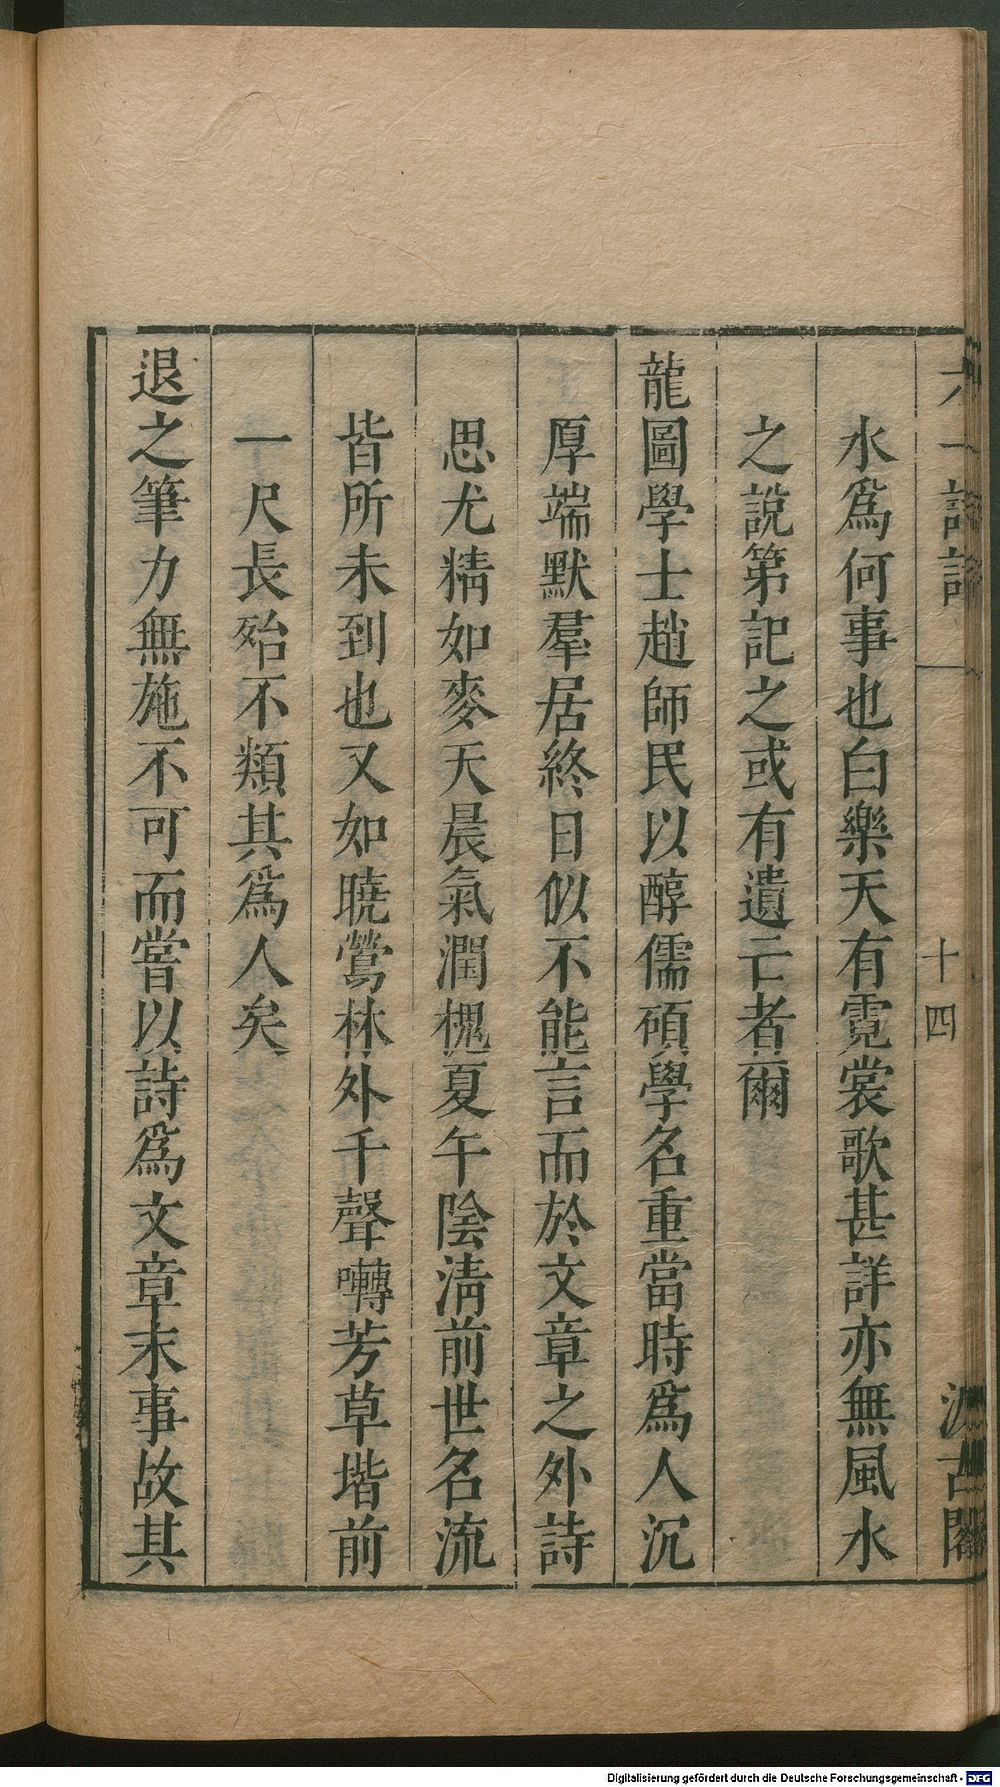 六一詩話
十四
汲古閣
水爲何事也白樂天有霓裳歌甚詳亦無風水
之說第記之或有遺亡者爾
龍圖學士趙師民以醇儒碩學名重當時爲人沉
厚端默羣居終日似不能言而於文章之外詩
思尤精如麥天晨氣潤槐夏午陰淸前世名流
皆所未到也又如曉鶯林外千聲囀芳草堦前
一尺長殆不類其爲人矣
退之筆力無施不可而嘗以詩爲文章末事故其
Digitalisierung gefördert durch die Deutsche Forschungsgemeinschaft - DFG